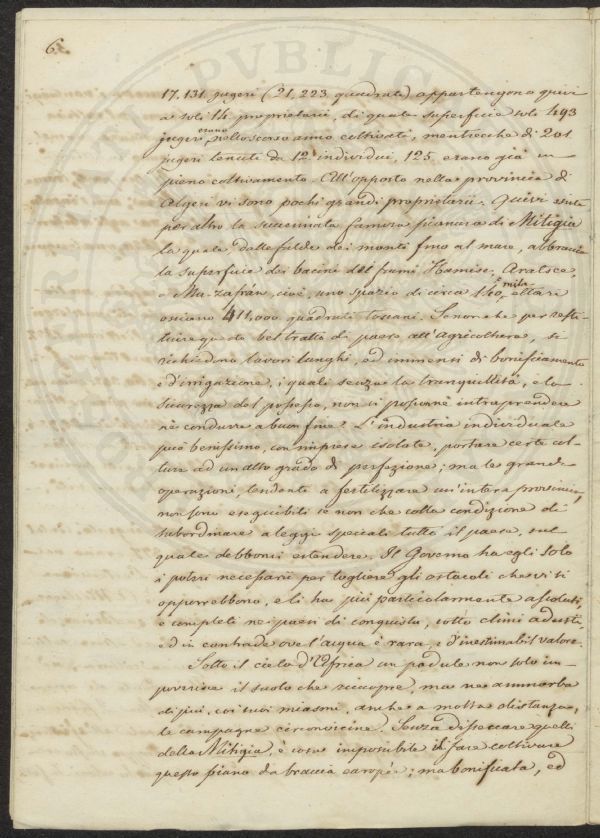 6.
17.131 jugeri (21,223 quadrati) appartengono quivi
a soli 14 proprietarii, di quale superficie soli 493
jugeri erano nello scorso anno coltivati, mentrecche di 201
jugeri tenuti da 12 individui, 125 erano già in
pieno coltivamento. All'opposto nella provincia di
Algeri vi sono pochi grandi proprietarii. Quivi esiste
per altro la succennata famosa pianura di Mitigia
la quale dalle falde dei monti fino al mare, abbraccia
la superficie dei bacini del fiumi Hamise, Aratsce,
e Ma-zafrán, cioè, uno spazio di circa 140, mila ettare
ossiano 411,000 quadrati toscani. Se non che per resti-
tuire questo bel tratto di paese all'agricoltura, si
richiedono lavori lunghi, ed immensi di bonificamento
e d'irrigazione, i quali senza la tranquillità, e la
sicurezza del possesso, non si possono intraprendere
nè condurre a buon fine. L'industria individuale
può benissimo, con imprese isolate, portare certe col-
ture ad un alto grado di perfezione; ma le grandi
operazioni, tendenti a fertilizzare un'intera provincia,
non sono eseguibili se non che colla condizione di
subordinare a leggi speciali tutto il paese, sul
quale debbonsi estendere. Il Governo ha egli solo
i poteri necessarii per togliere gli ostacoli che vi si
opporrebbono, e li ha più particolarmente assoluti,
e completi nei paesi di conquista, sotto climi adusti,
ed in contrade ove l'acqua è rara, e d'inestimabil valore.
Sotto il cielo d'Affrica un padule non solo im-
poverisce il suolo che ricuopre, ma ne ammorba
di più, coi suoi miasmi, anche a molta distanza,
le campagne circonvicine. Senza disseccare quelli
della Mitigia, è cosa impossibile il fare coltivare
questo piano da braccia europee; ma bonificata, ed